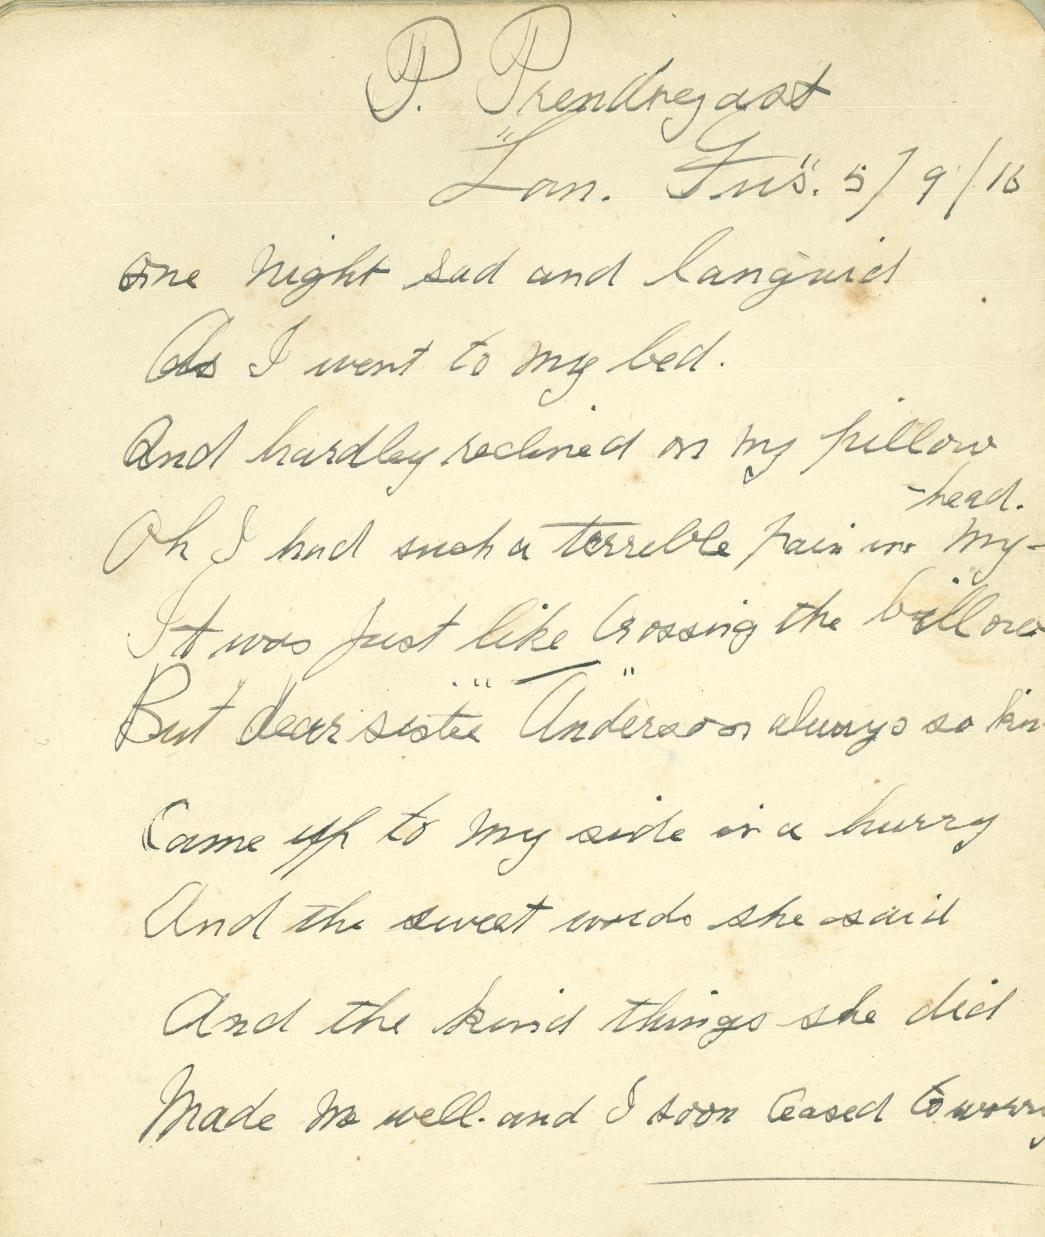 P. Prendregast
"Lan. Fus". 5/9/16
one night sad and languid
As I went to my bed.
And hardley reclined on my pillow
-head.
Oh I had such a terrible pain in my-
It was just like Crossing the billow
But dear sister "Anderson" always so kin
Came up to my side in a hurry
And the sweet words she said
And the kind things she did
Made me well. and I soon Ceased to worry